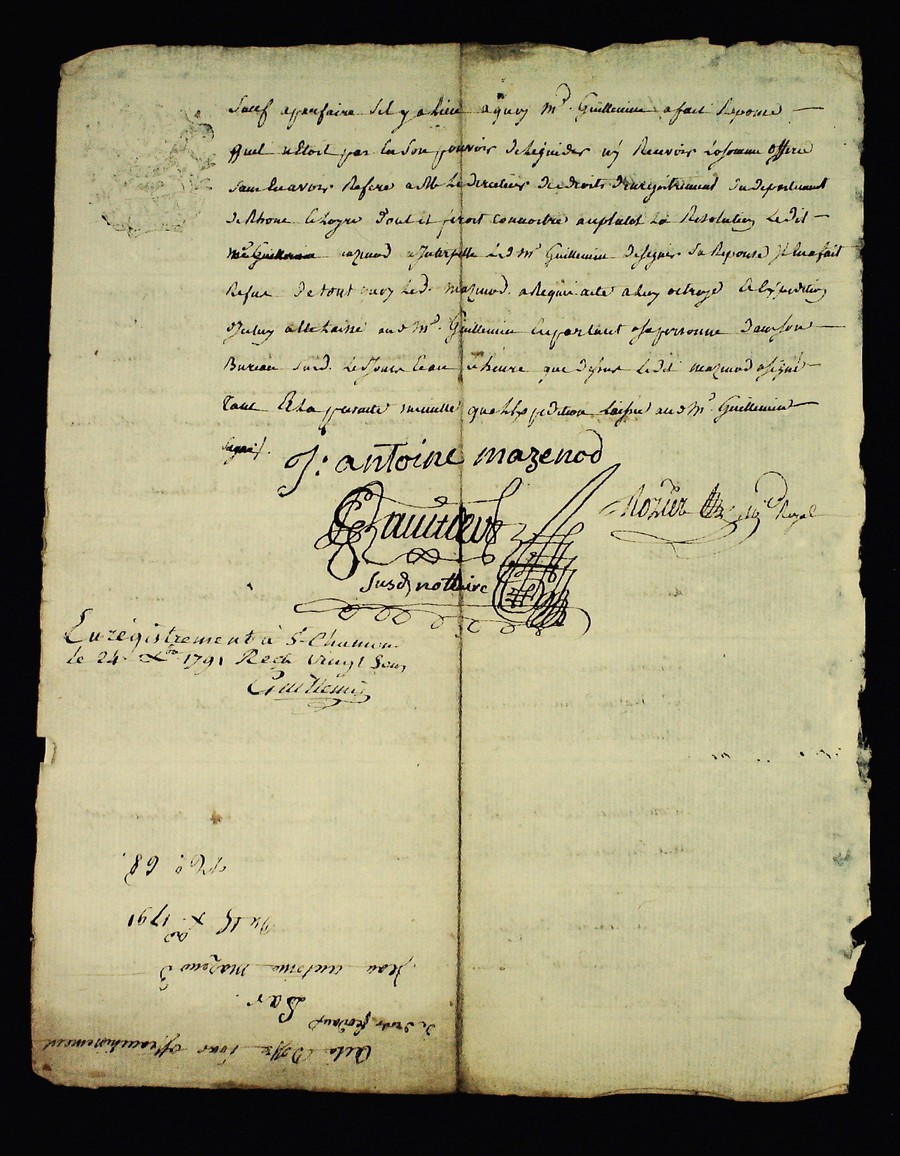 Sauf a parfaire s'il y a lieu a quoy Mr. Guillemin a fait Reponse
quil n'étoit pas En Son pouvoir de liquider ny Recevoir la somme offerte
Sans En avoir Référé a Mr. Le directeur des droits d'enregistrement du departement
de Rhone et Loyre dont il feroit connoitre au plutot La Resolution Le dit
Mr. Guillemin mazenod a Interpellé led. Mr. Guillemin de signer Sa Reponse Il En a fait
Refus De tout quoy Led. mazenod a Requis acte a luy octroyé Et Expedition
au d. Mr. Guillemin En parlant a sa personne dans son
Bureau Susd. Les Jour et an heure que dessus Le dit mazenod a signé
tant Et La presente minutte que L'Expedition laissée au d. Mr. Guillemin
J: antoine mazenod
Gauttier
Susd. nottaire
Rozier Royal
Enrégistrement à St. Chamon
le 24 Xbre 1791 Reçu vingt Sous
Guillemin
Acte Offre pour affranchissement
de droits feodaux
Par
Jean antoine mazenod
Du 15 Xbre 1791
No. 68.